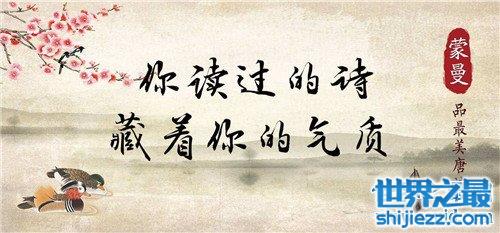 你读过的诗
藏着你的气质
蒙曼
品最美唐
世界之最
shijiezzi.com